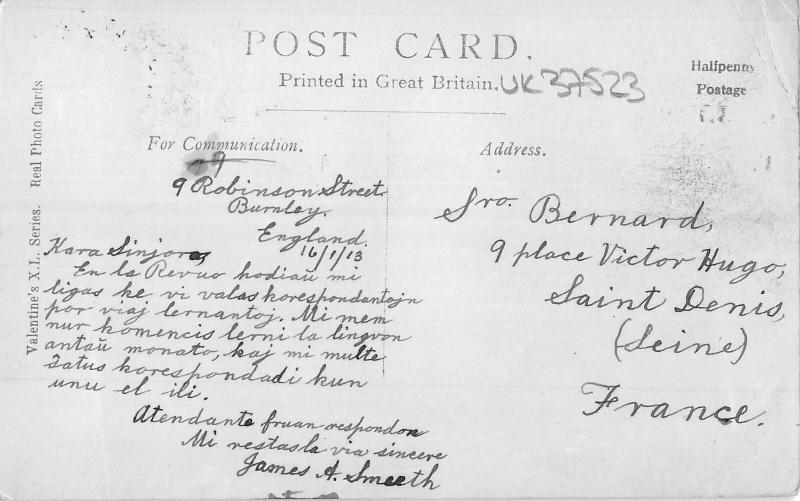 POST CARD.
Printed in Great Britain. UK37523
Halfpenny
Postage
Valentine's X.L. Series. Real Photo Cards
For Communication.
Address.
9
9 Robinson Street.
Burnley.
England.
16/1/13
Kara Sinjoro,
En la Revuo hodiaŭ mi
ligas ke vi valas korespondantojn
por viaj lernantoj. Mi mem
nur komencis lerni la lingvon
antaŭ monato, kaj mi multe
ŝatus korespondadi kun
unu el ili.
Atendante fruan respondon
Mi restas la via sincere
James A. Smeeth
Sro. Bernard,
9 place Victor Hugo,
Saint Denis,
(Seine)
France.